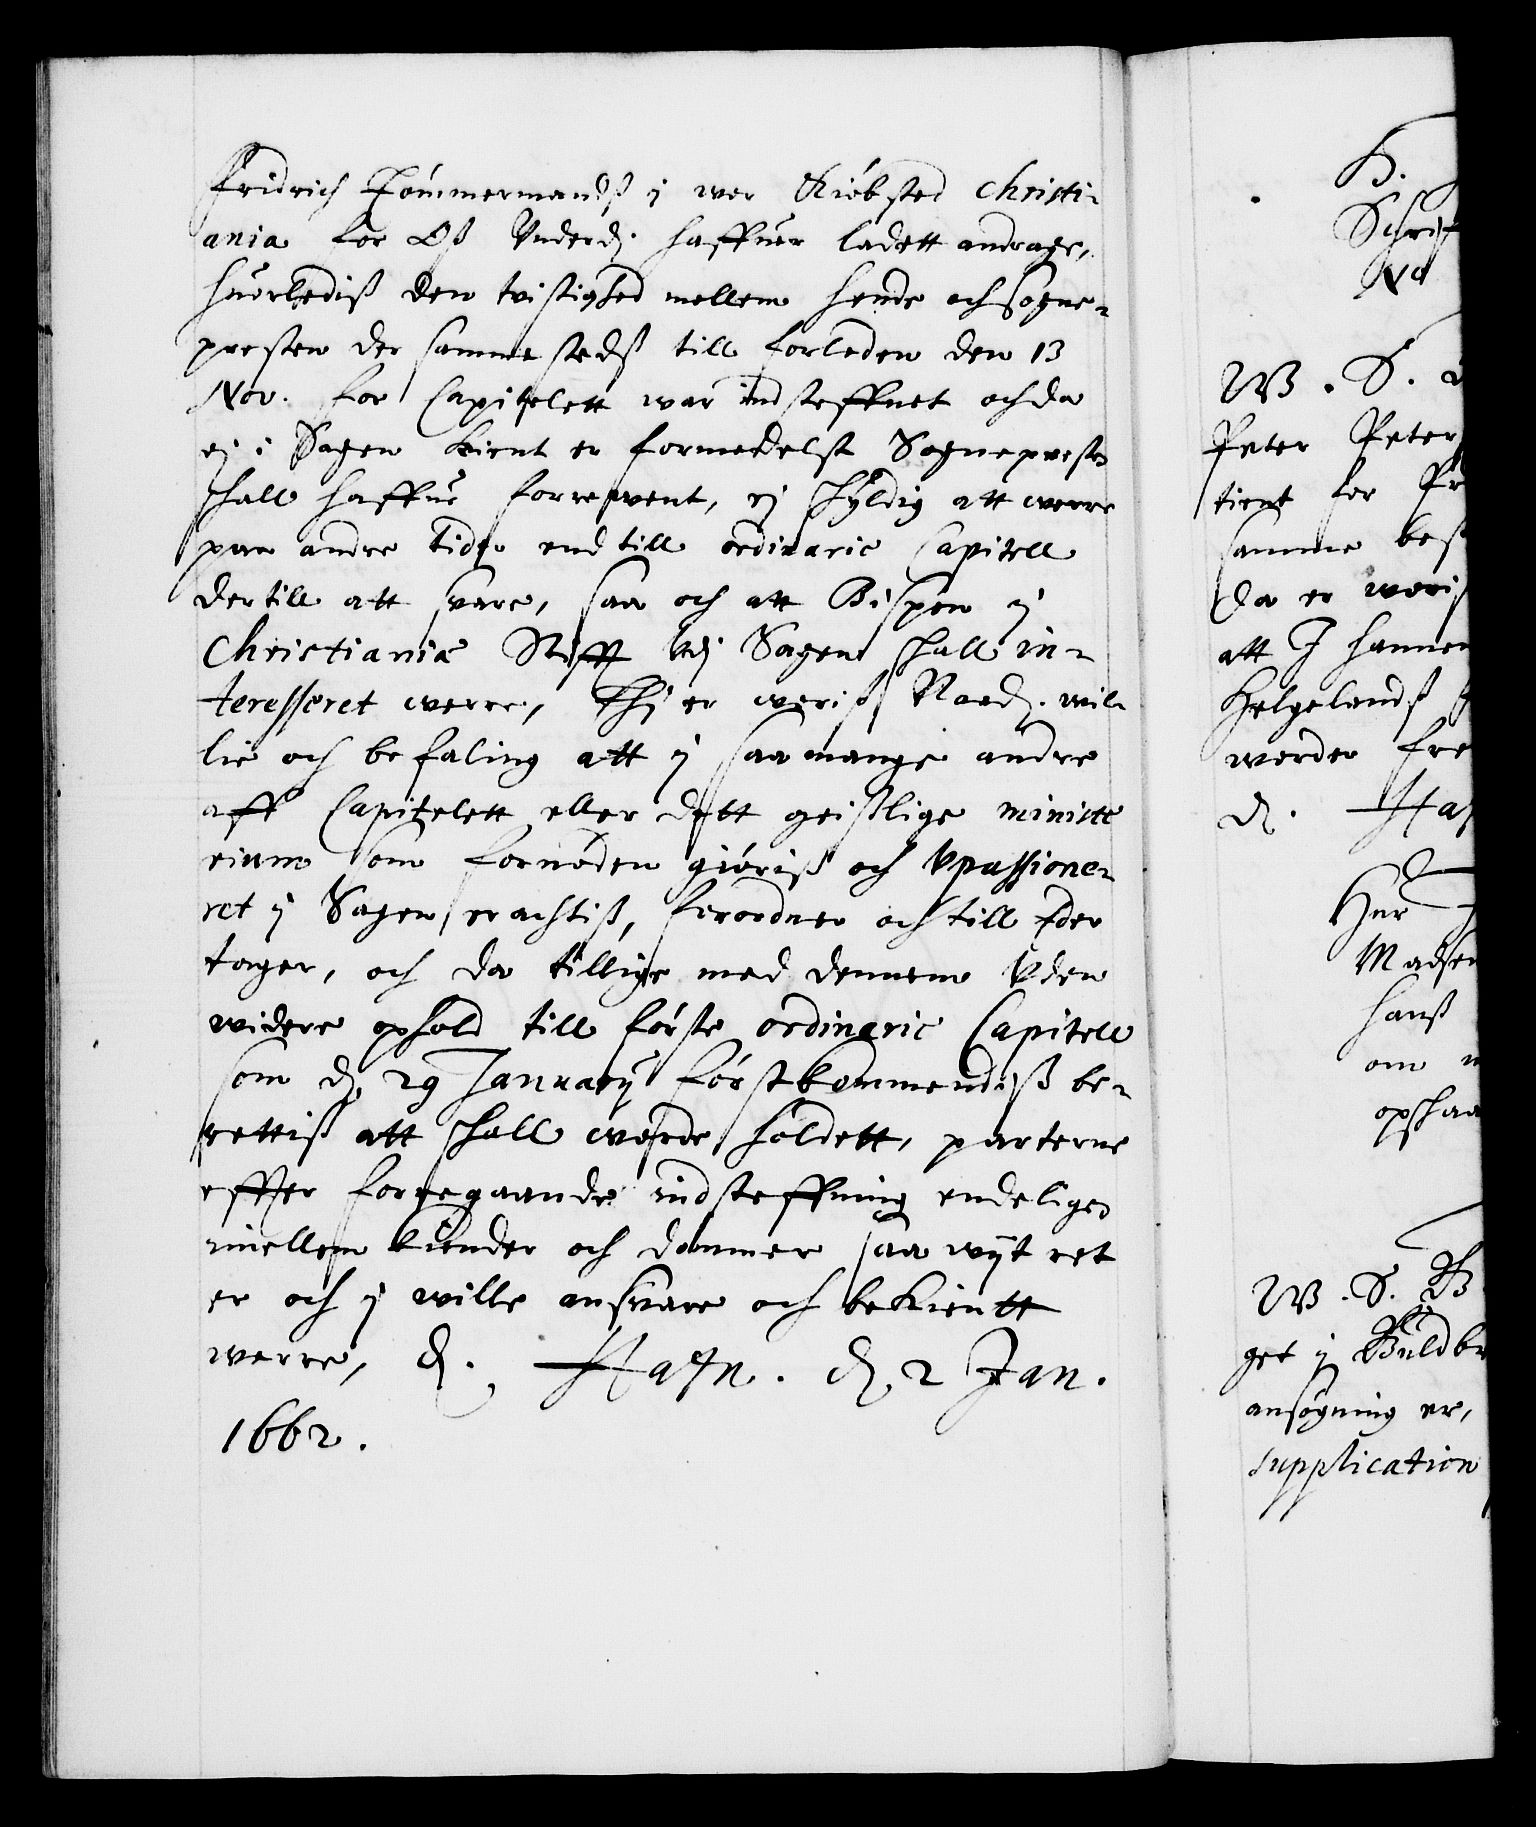 Fridrich Tömmermandß i wor Kiöbsted Christi-
ania for Oß Underd. haffuer ladett andrage,
huorlediß den tuistighed mellem hende och Sogne-
presten der sammestedß till forleden den 13
Nov. for Capitelett war indsteffnet och da
ej i Sagen kient er formedelst Sognepresten
schall haffue forrewent, ej schyldig att werre
paa andre tider end till ordinarie Capitell
dertill att svare, saa och att Bispen y
Christianiæ Stifft udj Sagen schall in-
teresseret werre, Thj er woriß Naad. wil-
lie och befaling att y saa mange andre
aff Capitelett eller dett geistlige ministe
rium som fornøden giöriß och Upassione-
ret y Sagen erachtiß, forordner och till Eder
tager, och da tillige med dennem Uden
widere ophold till förste ordinarie Capitell
som d. 29 January förstkommendiß be-
rettiß att schall worde holdett, parterne
effter foregaaende indsteffning endeligen
imellem kiender och dömmer saa wijt ret
er och y wille answare och bekientt
werre, d. Hafn. d. 2 Jan.
1662.
H.
Schrif
No
W. S. 
Peter Peter
tient for Pr
samme bes
da er woris
att I hannem
Helgelandß
worder fre
d. Haf
Her
Madsen
hanß
om
opschaa
W. S. B
get y Guldbr
ansögning er,
supplication